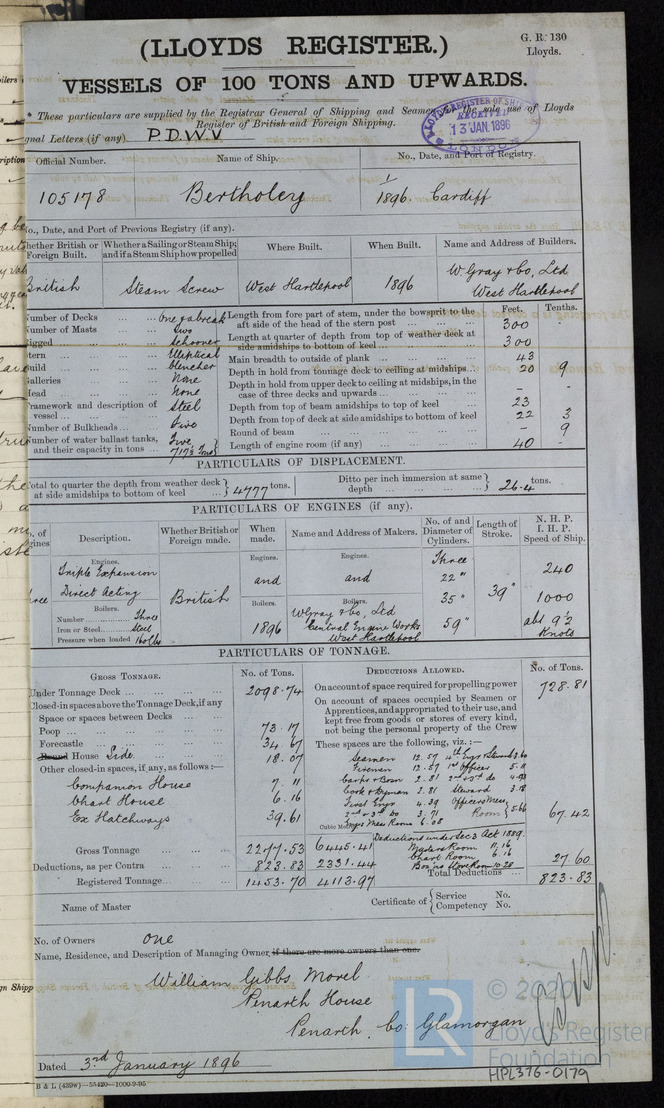 (LLOYDS REGISTER.)
G. R. 130
Lloyds.
VESSELS OF 100 TONS AND UPWARDS.
* These particulars are supplied by the Registrar General of Shipping and Seamen for the sole use of Lloyds
Register of British and Foreign Shipping.
LLOYD'S REGISTER OF SHIPPING
RECEIVED
13 JAN. 1896
LONDON
gnal Letters (if any) P.D.W.V
Official Number. Name of Ship. No., Date, and Port of Registry.
105178 Bertholey 1/1896. Cardiff
No., Date, and Port of Previous Registry (if any).
hether British or Foreign Built. Whether a Sailing or Steam Ship; and if a Steam Ship how propelled Where Built. When Built. Name and Address of Builders.
British Steam Screw West Hartlepool 1896 W Gray & Co, Ltd West Hartlepool
Number of Decks one & a break
Number of Masts two
Rigged Schooner
Stern Elliptical
Build Clencher
Galleries None
Head None
Framework and description of vessel Steel
Number of Bulkheads Five
Number of water ballast tanks, and their capacity in tons Five
Feet. Tenths.
Length from fore part of stem, under the bowsprit to the aft side of the head of the stern post 300
Length at quarter of depth from top of weather deck at side amidships to bottom of keel 300
Main breadth to outside of plank 43
Depth in hold from tonnage deck to ceiling at midships 20 9
Depth in hold from upper deck to ceiling at midships, in the case of three decks and upwards - -
Depth from top of beam amidships to top of keel 23
Depth from top of deck at side amidships to bottom of keel 22 3
Round of beam - 9
Length of engine room (if any) 40 -
PARTICULARS OF DISPLACEMENT.
Total to quarter the depth from weather deck at side amidships to bottom of keel 4777 tons. Ditto per inch immersion at same depth 26.4 tons.
PARTICULARS OF ENGINES (if any).
No. of Engines Description. Whether British or Foreign made. When made. Name and Address of Makers. No. and Diameter of Cylinders. Length of Stroke. N. H. P. I. H. P. Speed of Ship.
Engines. Engines. Engines. Three
Triple Expansion and and 22" 240
Direct Acting British 35" 39" 1000
Boilers. Boilers. Boilers.
Number Three W Gray & Co, Ltd
Iron or Steel Steel 1896 Central Engine Works 59" abt 9½
Pressure when loaded 160 lbs West Hartlepool Knots
PARTICULARS OF TONNAGE.
GROSS TONNAGE. No. of Tons.
Under Tonnage Deck 2098.74
Closed-in spaces above the Tonnage Deck, if any
Space or spaces between Decks
Poop 73.17
Forecastle 34.67
Round House Side. 18.07
Other closed-in spaces, if any, as follows:—
Companion House 7.11
Chart House 6.16
Ex Hatchways 39.61
Gross Tonnage 2277.53 6445.41
Deductions, as per Contra 823.83 2331.44
Registered Tonnage 1453.70 4113.97
DEDUCTIONS ALLOWED. No. of Tons.
On account of space required for propelling power 728.81
On account of spaces occupied by Seamen or
Apprentices, and appropriated to their use, and
kept free from goods or stores of every kind,
not being the personal property of the Crew
These spaces are the following, viz.:—
Seamen 12.57 4th Engr & Steward 3.60
Firemen 12.57 1st Officer 5.11
2.81 2nd & 3rd do 4.93
2.81 Steward 3.18
First Engr 4.39 Officers Mess Room 5.66
2nd & 3rd do 3.71
Engrs Mess Room 6.08 67.42
Cubic Metres
Deductions under Sec 3 Act 1889.
Masters Room 11.16
Chart Room 6.16
Bosn's Store Room 10.28 27.60
Total Deductions 823.83
Name of Master Certificate of { Service No.
Competency No.
No. of Owners one
Name, Residence, and Description of Managing Owner, if there are more owners than one.
William Gibbs Morel
Penarth House
Penarth Co. Glamorgan
Dated 3rd January 1896
B & L (439w)—55420—1000-9-95
LR © 2020
Lloyd's Register
Foundation
HPL376-0179